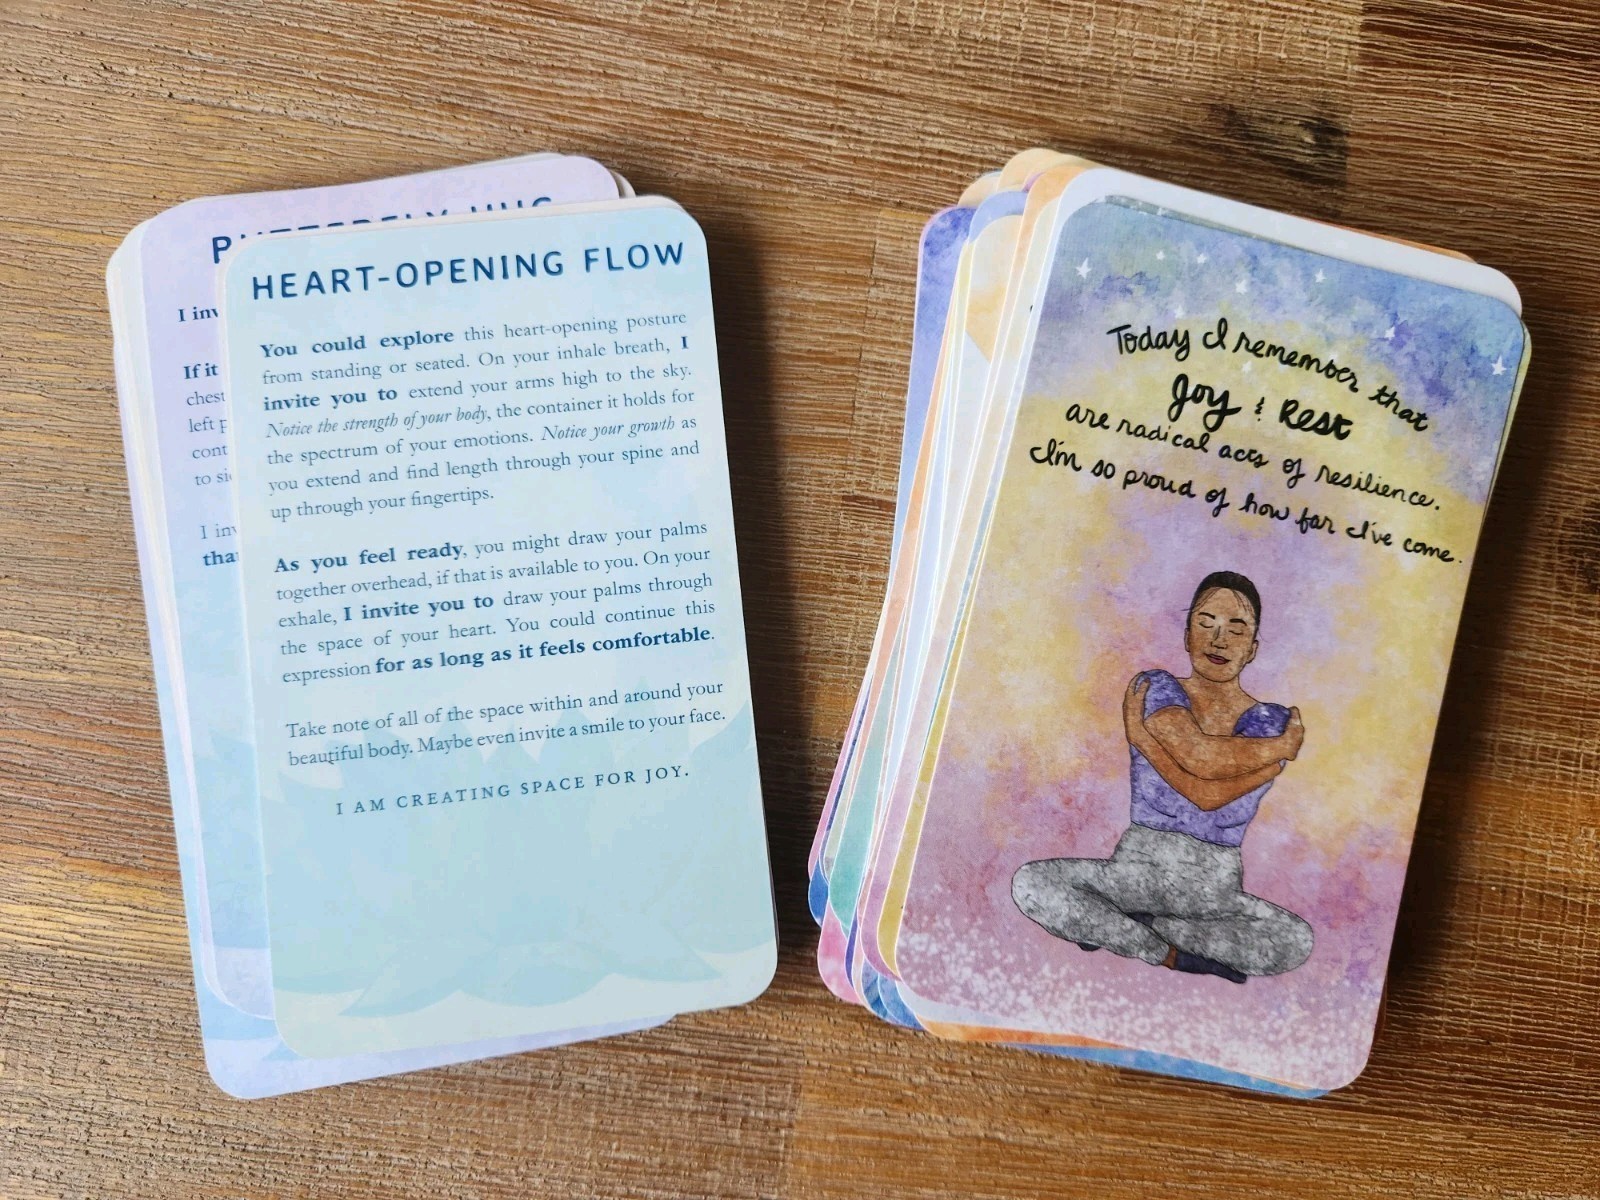 BUTTERFLY HUG
I inv
If it
chest
left p
cont
to si
I inv
tha
HEART-OPENING FLOW
You could explore this heart-opening posture
from standing or seated. On your inhale breath, I
invite you to extend your arms high to the sky.
Notice the strength of your body, the container it holds for
the spectrum of your emotions. Notice your growth as
you extend and find length through your spine and
up through your fingertips.
As you feel ready, you might draw your palms
together overhead, if that is available to you. On your
exhale, I invite you to draw your palms through
the space of your heart. You could continue this
expression for as long as it feels comfortable.
Take note of all of the space within and around your
beautiful body. Maybe even invite a smile to your face.
I AM CREATING SPACE FOR JOY.
Today I remember that
Joy & Rest
are radical acts of resilience.
I'm so proud of how far I've come.